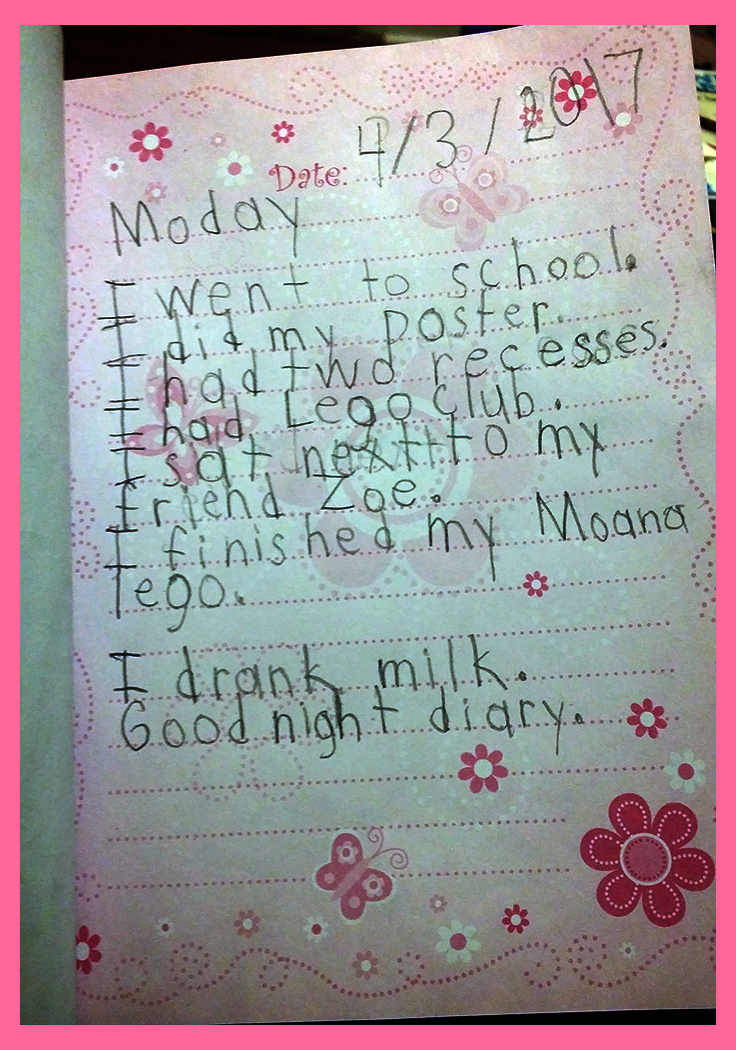 Date: 4/3/2017
Moday
I went to school.
I did my poster.
I had two recesses.
I had Lego club.
I sat next to my
friend Zoe.
I finished my Moana
lego.
I drank milk.
Good night diary.